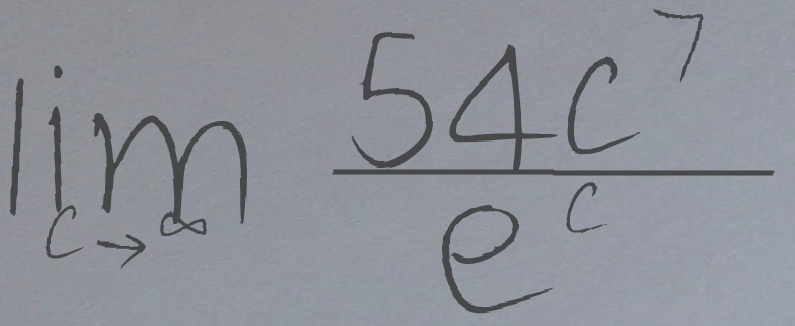 \lim_{c \to \infty} \frac{54c^7}{e^c}